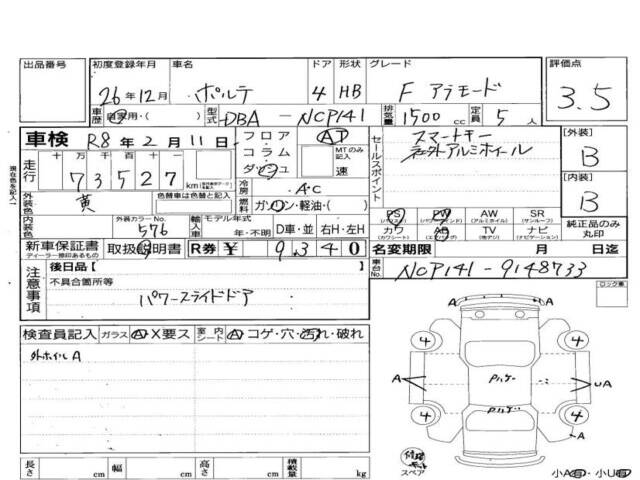 出品番号
初度登録年月 車名 ドア 形状 グレード 評価点
26年12月 ポルテ 4 HB F アラモード 3.5
車歴 自家用・( ) 型式 DBA - NCP141 排気量 1500 cc 定員 5 人
車検 R8年2月11日
フロア コラム ダッシュ AT MTのみ記入 速
セールスポイント スマートキー
社外アルミホイール
[外装] B
走行 十 万 千 百 十 一
73527 km
冷房 A・C
[内装] B
外装色 黄 色替車は色替と記入
燃料 ガソリン・軽油・( )
PS PW AW SR
(パワステ) (パワーウィンド) (アルミホイール) (サンルーフ)
内装色 外装カラーNo. 576 輸入車 モデル年式 年・不明 D車・並 右H・左H
カワ AB TV ナビ
(カワシート) (エアバッグ) (地アナ) (ナビゲーション)
純正品のみ丸印
新車保証書 取扱説明書 R券 ¥ 9,340
ディーラー捺印あるもの
名変期限 月 日迄
注意事項 後日品[ ]
車台No. NCP141-9148733
不具合箇所等
パワースライドドア
ロック車
検査員記入 ガラス A・X要ス 室内シート A コゲ・穴・汚れ・破れ
外ホイルA
A A
4 4
A パルケー UA
パルケー
4 4
A
修理キット
スペア
長さ cm 幅 cm 高さ cm 積載量 kg
小A有・小U有
現在色を記入